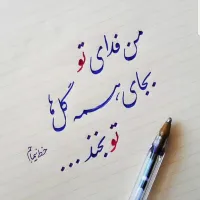 من فدای تو
بجای همه گل ها
تو بخند ...